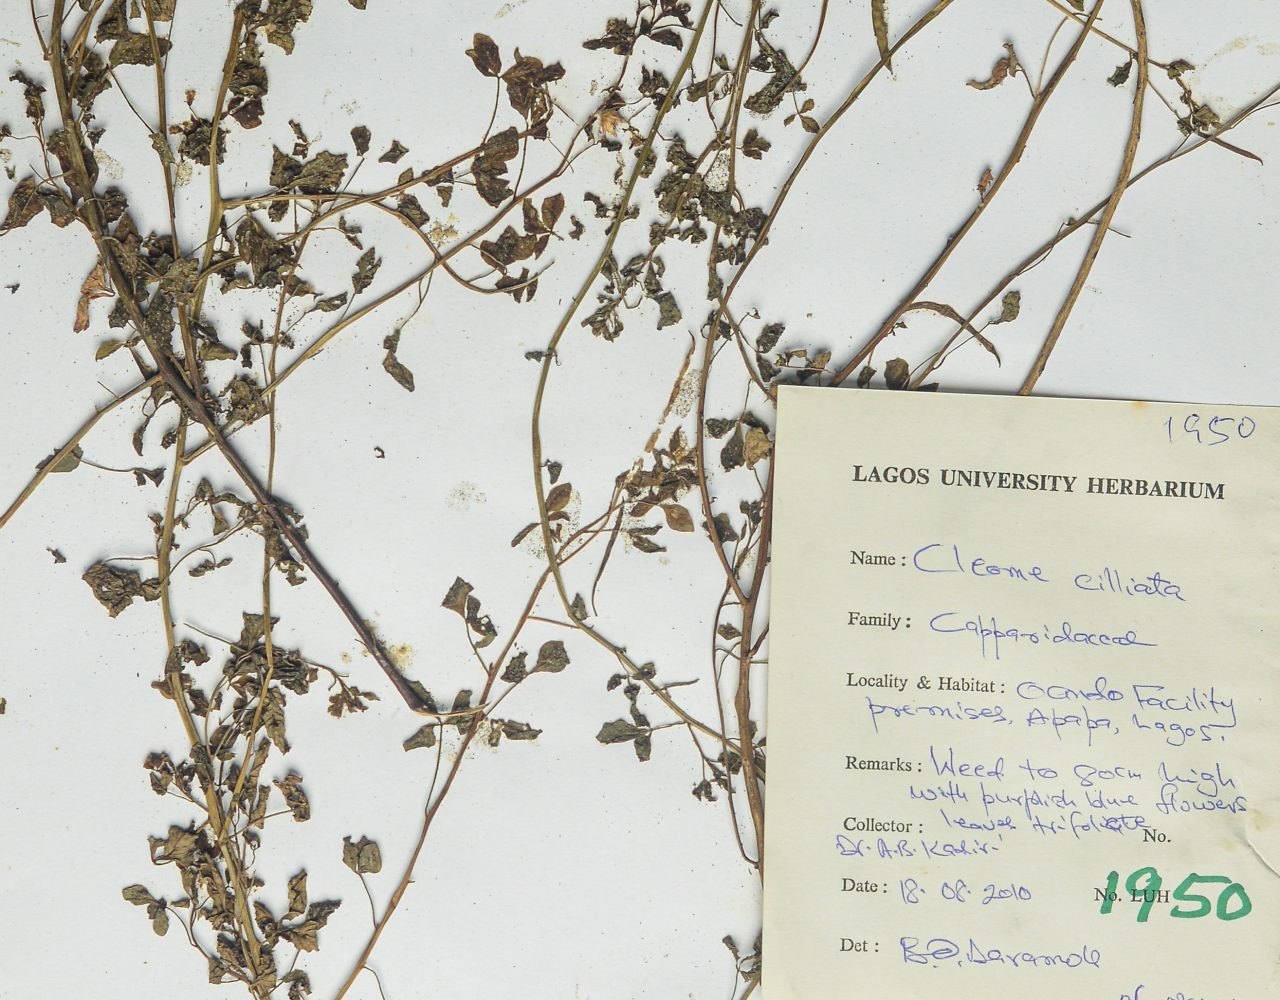 1950
LAGOS UNIVERSITY HERBARIUM
Name: Cleome cilliata
Family: Capparidaceae
Locality & Habitat: Oando Facility
premises, Apapa, Lagos.
Remarks: Weed to 80cm high
with purplish blue flowers
leaves trifoliate
Collector: No.
Dr. A.B. Kadiri
Date: 18.08.2010 No. LUH 1950
Det: B.O. Daramola